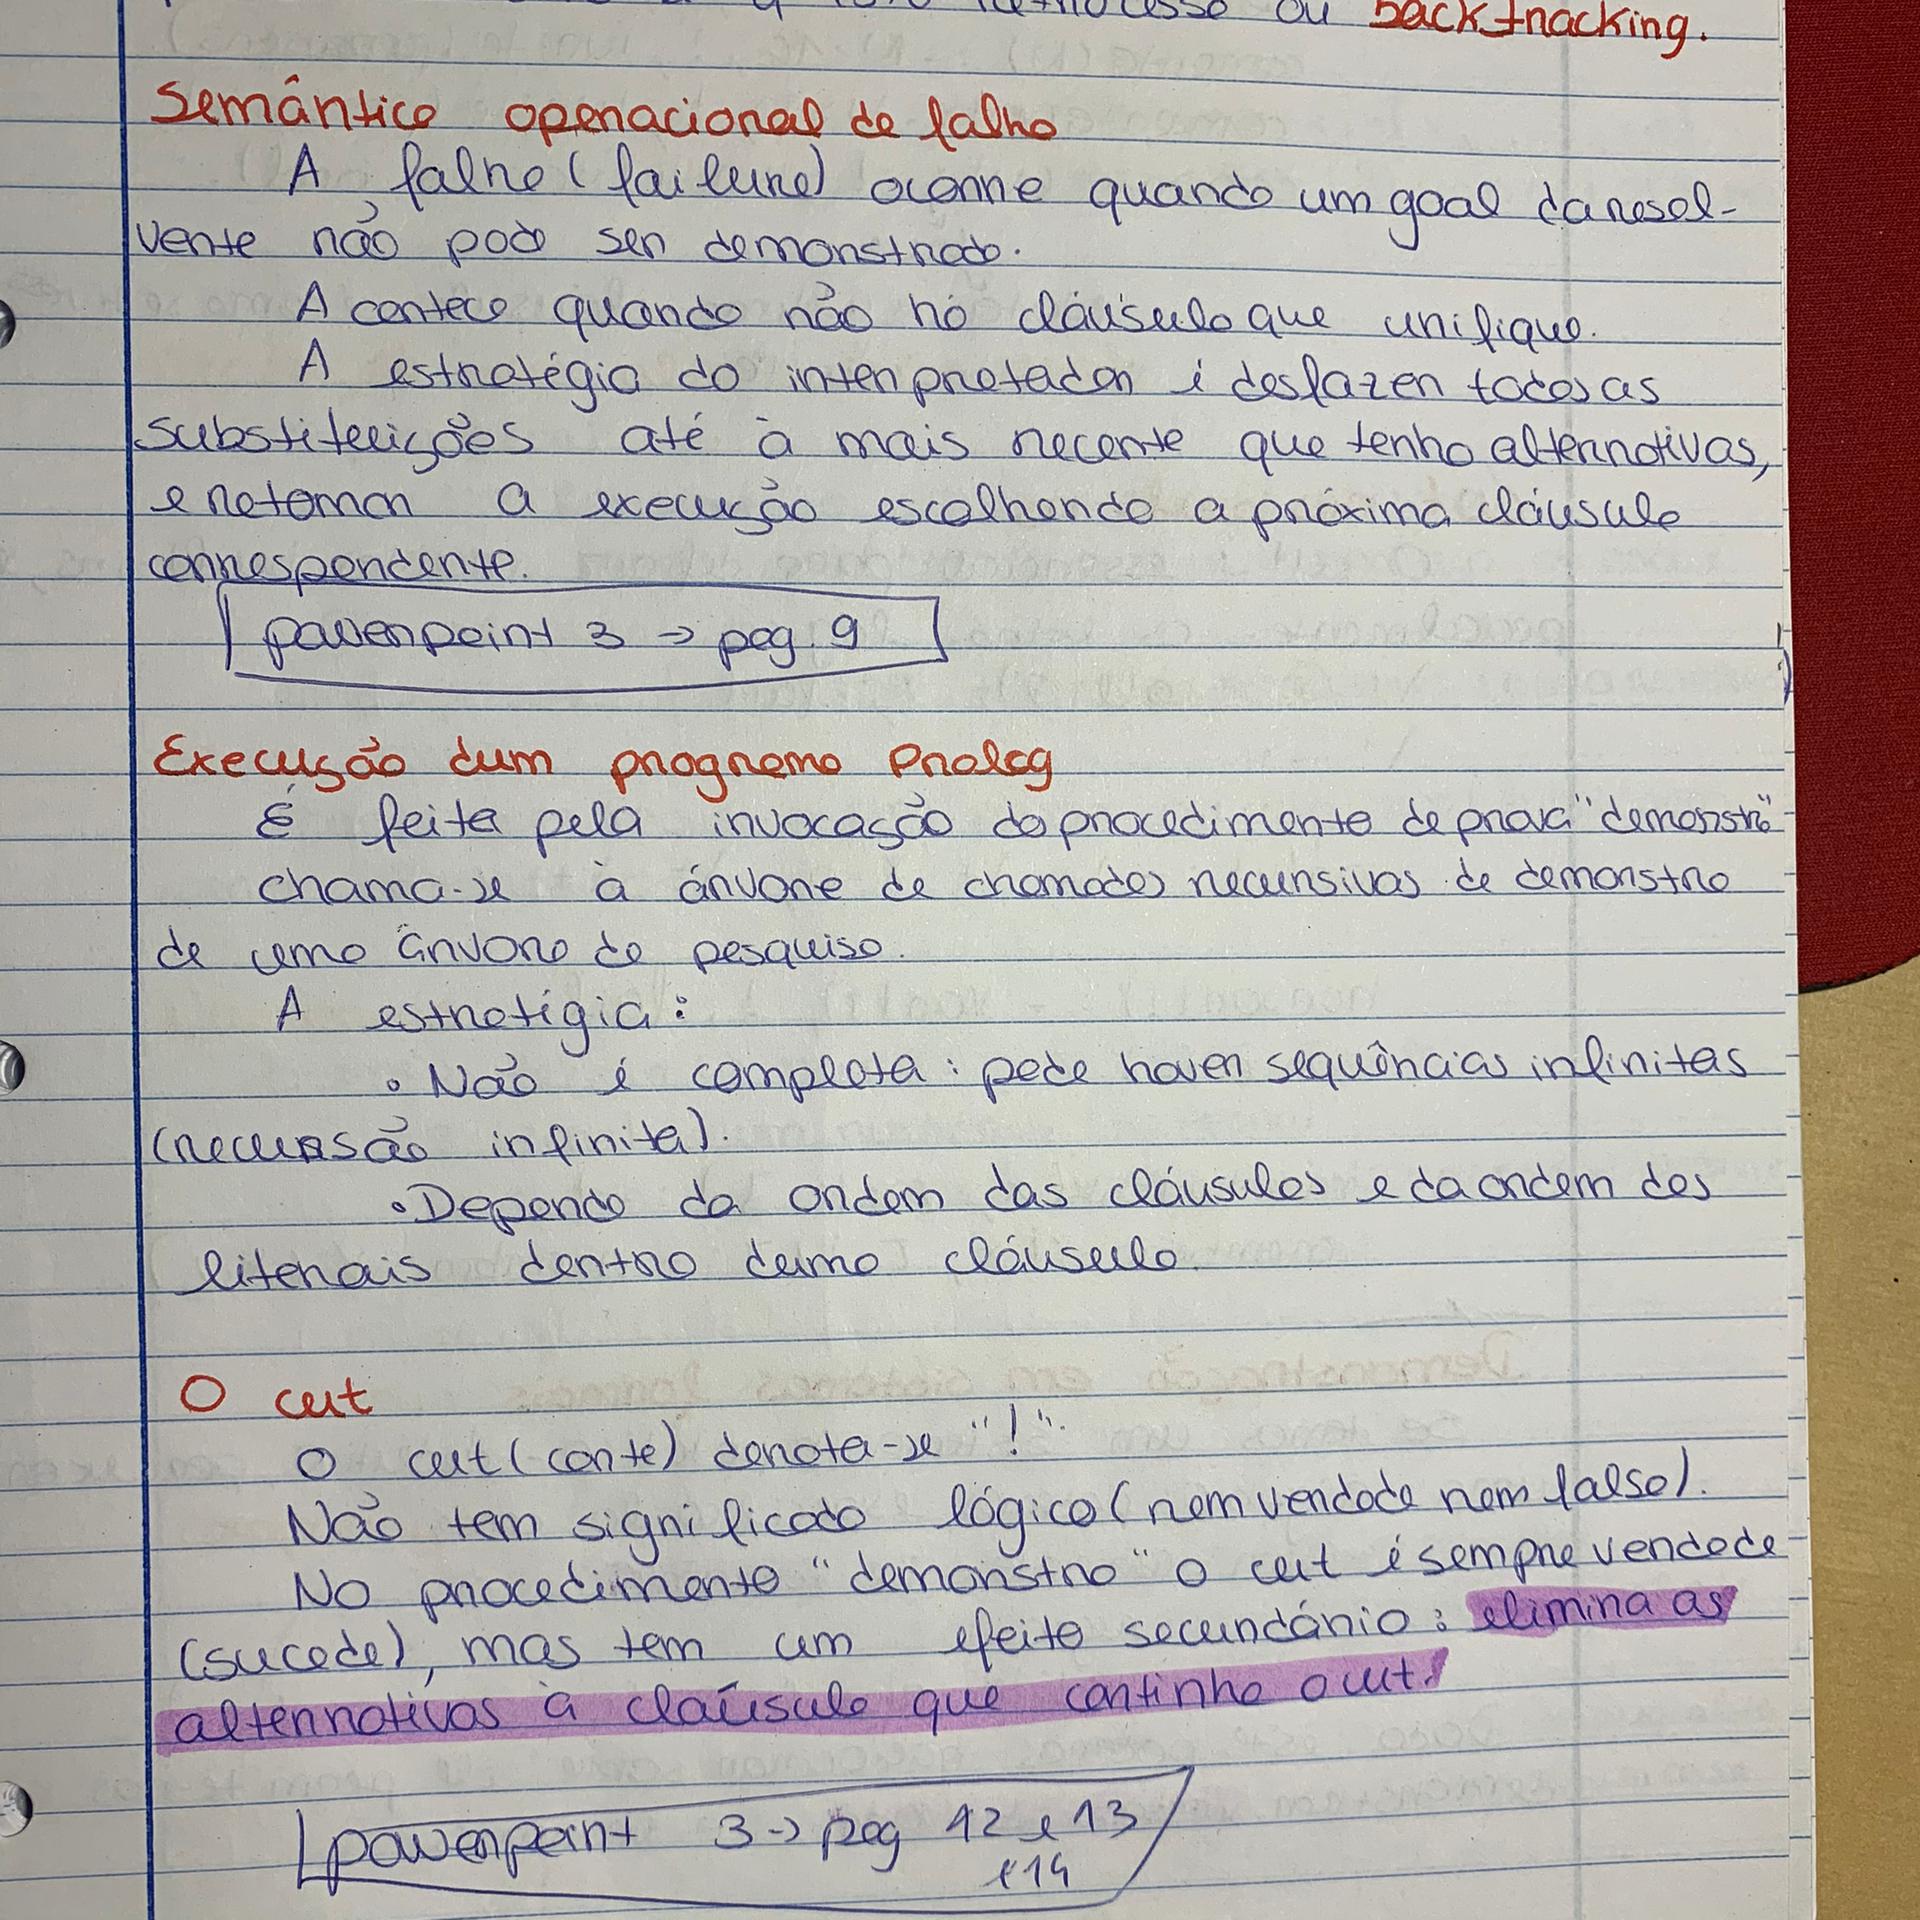 retrocesso ou backtracking.
Semântica operacional de falha
A falha (failure) ocorre quando um goal da resol-
vente não pode ser demonstrado.
Acontece quando não há cláusula que unifique.
A estratégia do interpretador é desfazer todas as
substituições até à mais recente que tenha alternativas,
e retomar a execução escolhendo a próxima cláusula
correspondente.
powerpoint 3 → pag. 9
Execução dum programa Prolog
É feita pela invocação do procedimento de prova "demonstra"
chama-se à árvore de chamadas recursivas de demonstra
de uma árvore de pesquisa.
A estratégia:
• Não é completa: pode haver sequências infinitas
(recursão infinita).
• Depende da ordem das cláusulas e da ordem dos
literais dentro duma cláusula.
O cut
O cut (corte) denota-se "!".
Não tem significado lógico (nem verdade nem falso).
No procedimento "demonstra" o cut é sempre verdade
(sucede), mas tem um efeito secundário: elimina as
alternativas à claúsula que continha o cut.
powerpoint 3 → pag 12 e 13
e 14